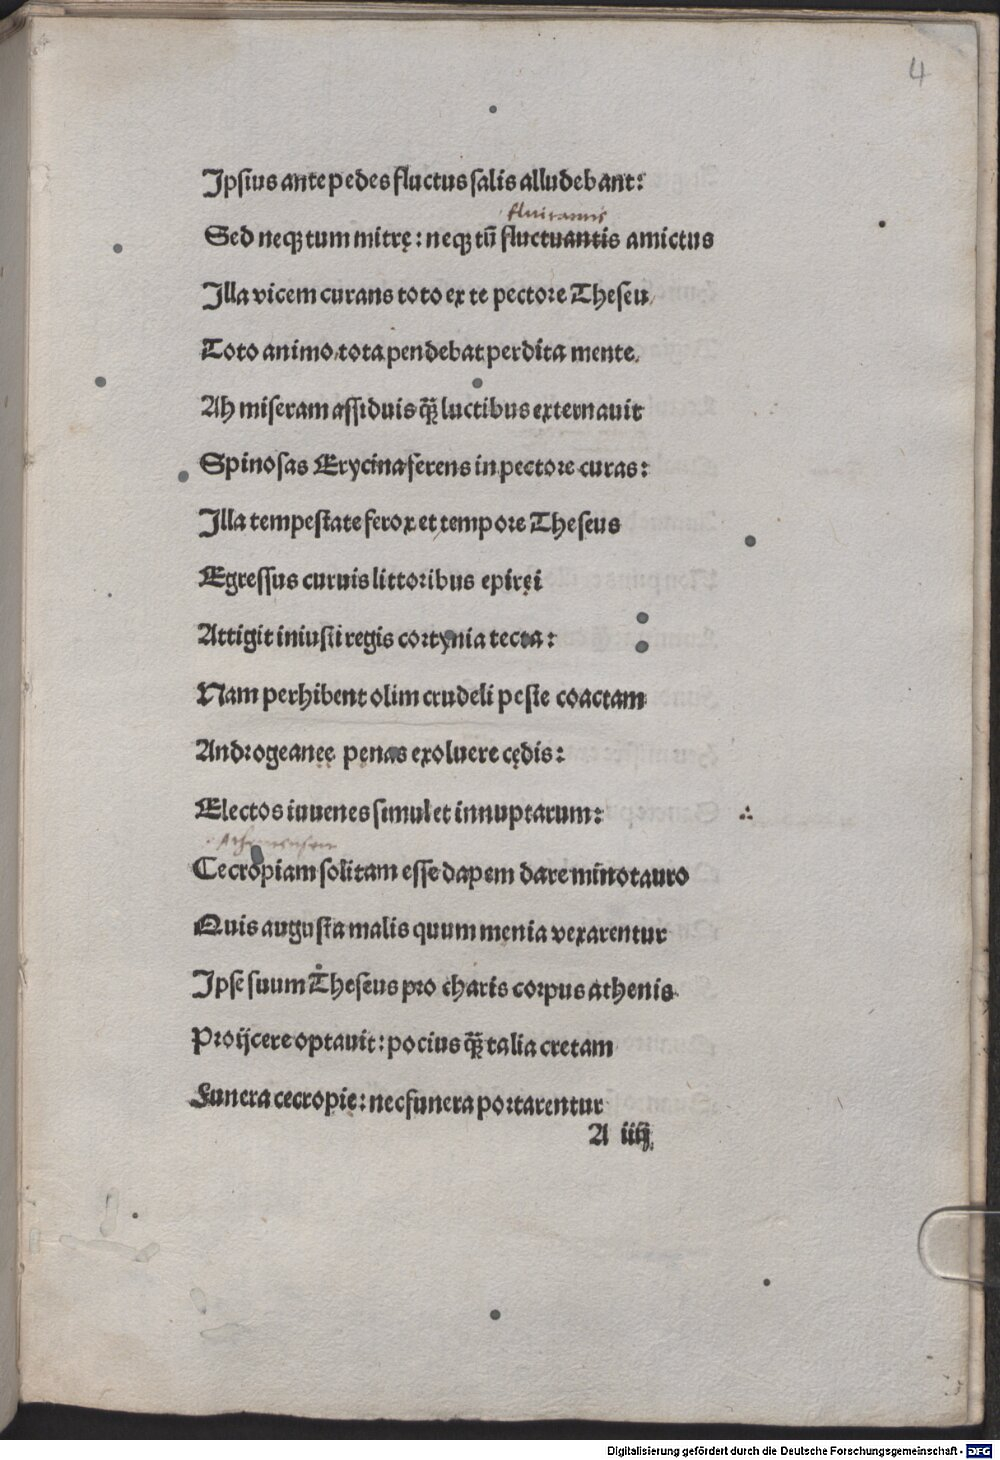 4
Ipsius ante pedes fluctus salis alludebant:
fluitantis
Sed neqꝫ tum mitrę: neqꝫ tū fluctuantis amictus
Illa vicem curans toto ex te pectore Theseu
Toto animo tota pendebat perdita mente.
Ah miseram assiduis q̄ꝫ luctibus externauit
Spinosas Erycina serens in pectore curas:
Illa tempestate ferox et tempore Theseus
Egressus curuis littoribus epiręi
Attigit iniusti regis cortynia tecta:
Nam perhibent olim crudeli peste coactam
Androgeanee penas exoluere cędis:
Electos iuuenes simul et innuptarum:
Cecropiam solitam esse dapem dare minotauro
Quis augusta malis quum męnia vexarentur
Ipse suum Theseus pro charis corpus athenis
Proijcere optauit: pocius q̄ꝫ talia cretam
Funera cecropię: nec funera portarentur
A iiij
Digitalisierung gefördert durch die Deutsche Forschungsgemeinschaft - DFG